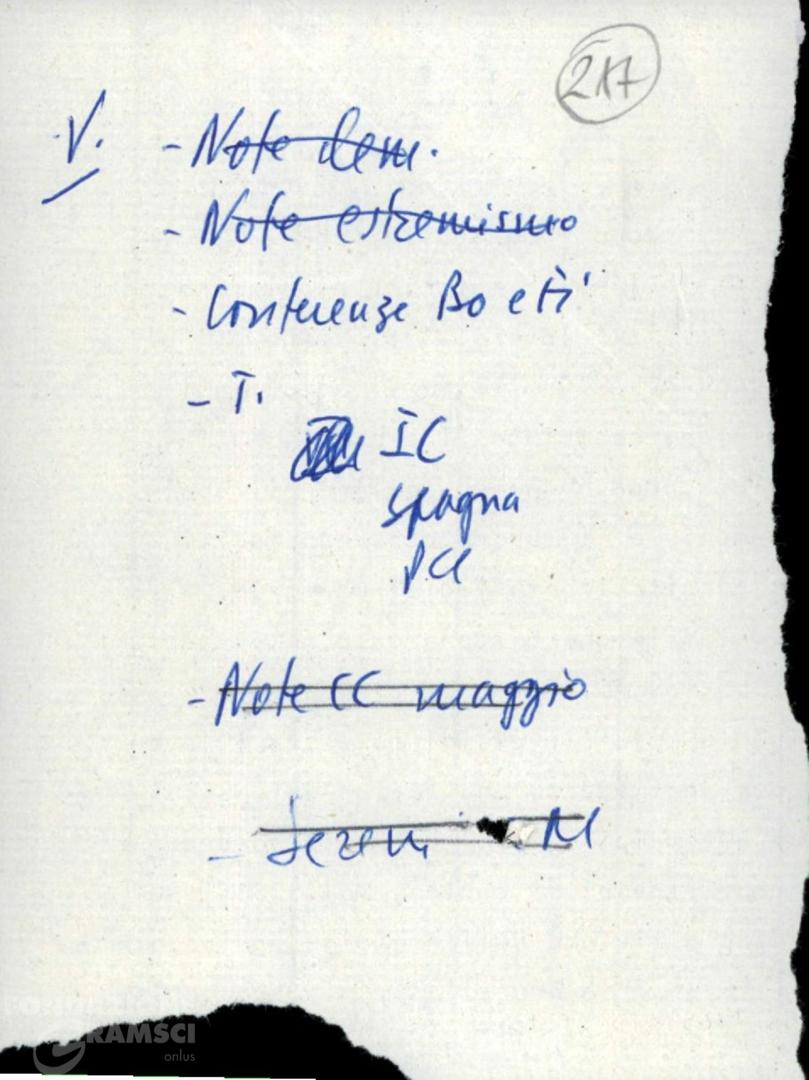 217
V. - Note dem.
- Note estremismo
- Conferenze Bo e Ti
- T.
IC
Spagna
PCI
- Note CC maggio
-
RAMSCI
onlus